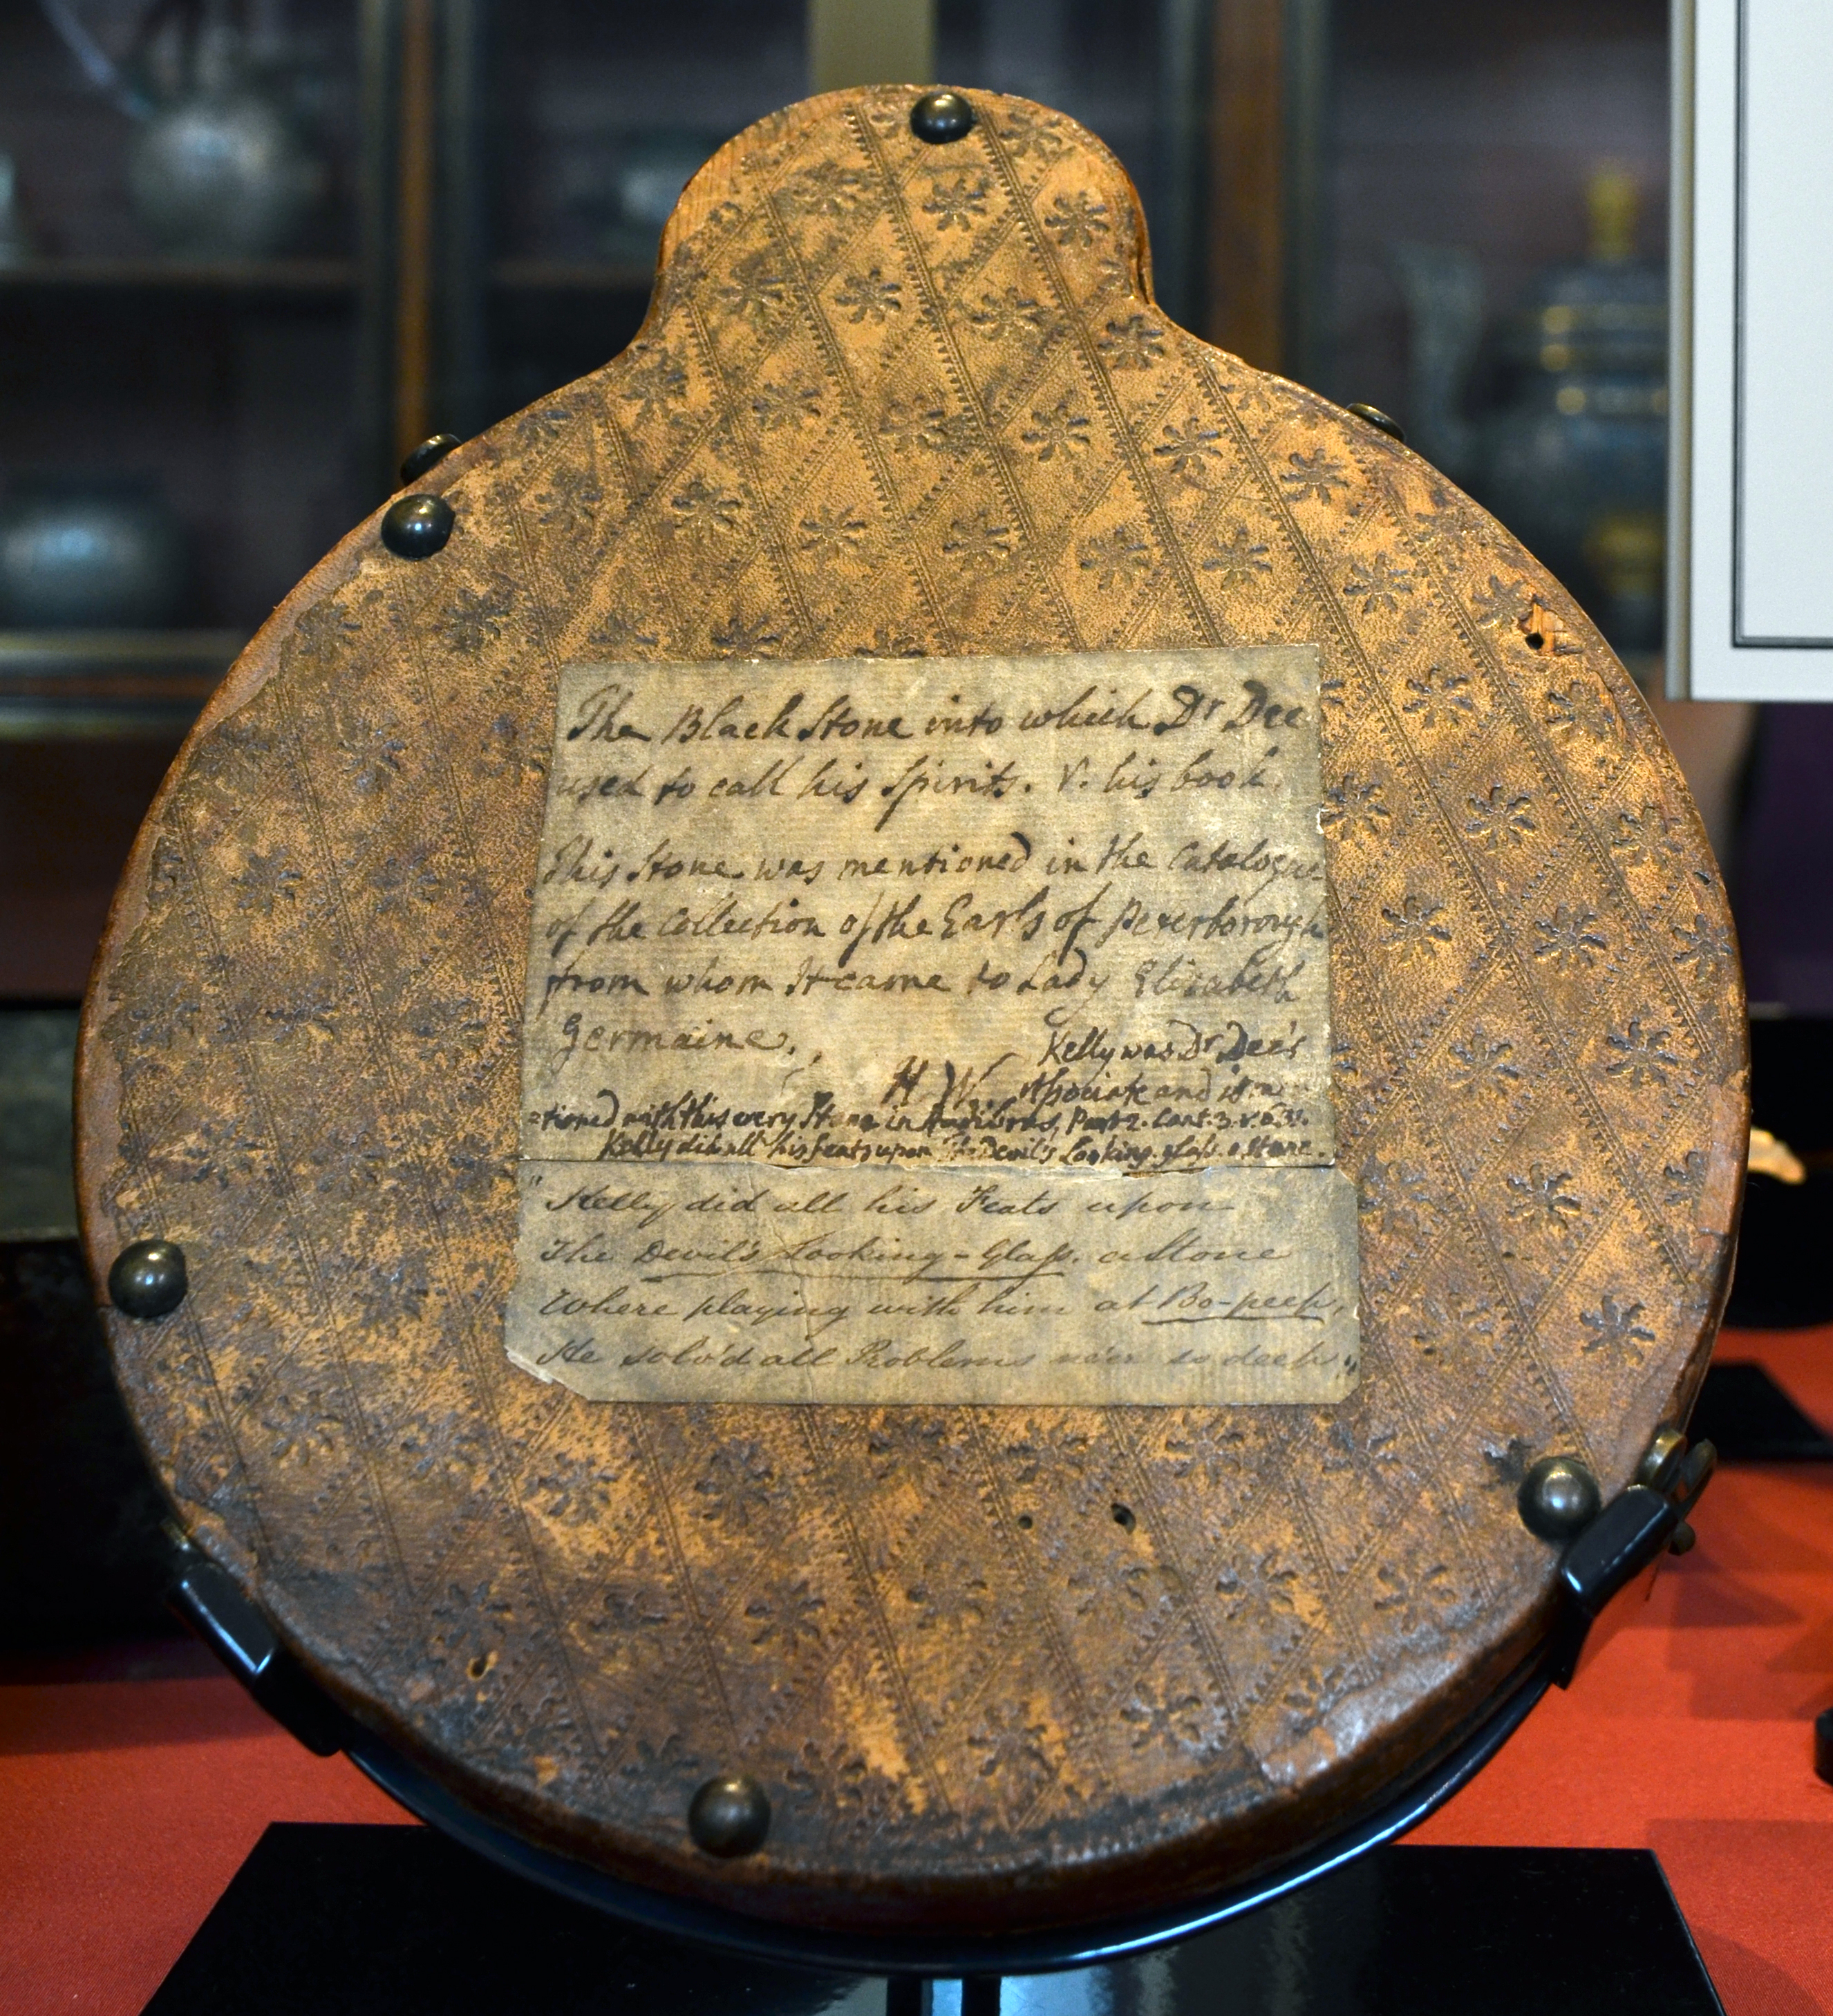 The Black Stone into which Dr Dee
used to call his Spirits. V. his book.
This Stone was mentioned in the Catalogue
of the Collection of the Earls of Peterborough
from whom It came to Lady Elizabeth
Germaine.
H W
Kelly was Dr Dee's
Associate and is men
=tioned with this very Stone in Hudibras, Part 2. Cant. 3. v.
Kelly did all his feats upon The Devil's Looking-glass, a Stone.
"Kelly did all his Feats upon
The Devil's Looking-Glass. a Stone
Where playing with him at Bo-peep,
He solv'd all Problems ne'er so deep."